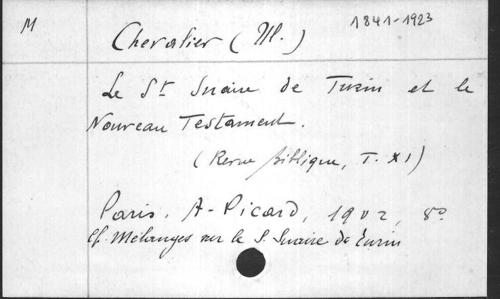 M
1841-1923
Chevalier (M.)
Le St Suaire de Turin et le
Nouveau Testament.
(Revue biblique, T. XI)
Paris, A. Picard, 1902, 8º
Cf. Mélanges sur le S. Suaire de Turin